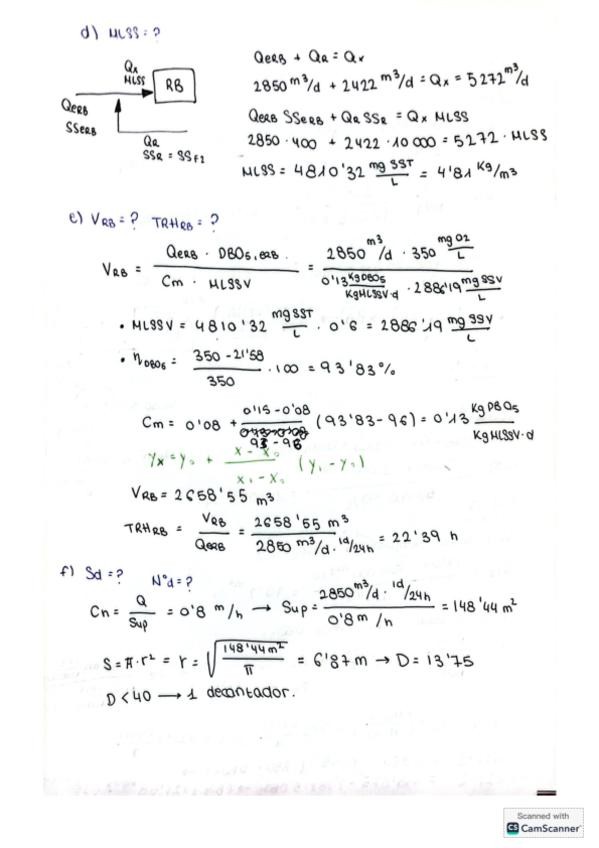 d) MLSS = ?
Qx
MLSS
RB
QERB
SSERB
QR
SSR = SSF2
QERB + QR = Qx
2850 m³/d + 2422 m³/d = Qx = 5272 m³/d
QERB SSERB + QR SSR = Qx MLSS
2850 · 400 + 2422 · 10 000 = 5272 · MLSS
MLSS = 4810'32 mg SST/L = 4'81 Kg/m³
e) VRB = ? TRHRB = ?
VRB = QERB · DBO5,ERB / Cm · MLSSV = 2850 m³/d · 350 mg O2/L / 0'13 Kg DBO5/Kg MLSSV·d · 2886'19 mg SSV/L
• MLSSV = 4810'32 mg SST/L · 0'6 = 2886'19 mg SSV/L
• ηDBO5 = 350 - 21'58 / 350 · 100 = 93'83%
Cm = 0'08 + 0'15 - 0'08 / 93 - 96 (93'83 - 96) = 0'13 Kg DBO5/Kg MLSSV·d
Yx = y0 + x - x0 / x1 - x0 (y1 - y0)
VRB = 2658'55 m³
TRHRB = VRB/QERB = 2658'55 m³ / 2850 m³/d · 1d/24h = 22'39 h
f) Sd = ? Nºd = ?
Cn = Q/Sup = 0'8 m/h → Sup = 2850 m³/d · 1d/24h / 0'8 m/h = 148'44 m²
S = π · r² = r = √ 148'44 m² / π = 6'87 m → D = 13'75
D < 40 → 1 decantador.
Scanned with
CS CamScanner